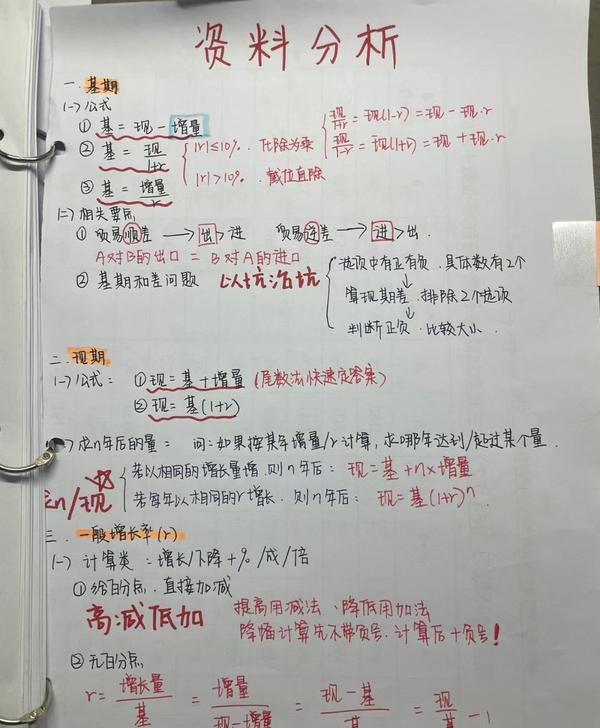 资料分析
一. 基期
(一) 公式
① 基 = 现 - 增量
② 基 = 现/1+r
|r|≤10%. 化除为乘
现/1+r = 现(1-r) = 现 - 现·r
现/1-r = 现(1+r) = 现 + 现·r
|r|>10%. 截位直除
③ 基 = 增量/r
(二) 相关要点
① 贸易顺差 → 出>进 贸易逆差 → 进>出.
A对B的出口 = B对A的进口
② 基期和差问题 以坑治坑
选项中有正有负. 具体数有2个
↓
算现期差. 排除2个选项
↓
判断正负. 比较大小.
二. 现期
(一) 公式: ① 现 = 基 + 增量 (尾数法快速定答案)
② 现 = 基(1+r)
求n年后的量: 问: 如果按某年增量/r计算, 求哪年达到/超过某个量.
n/现
若以相同的增长量增. 则n年后: 现 = 基 + n×增量
若每年以相同的r增长. 则n年后: 现 = 基(1+r)ⁿ
三. 一般增长率(r)
(一) 计算类: 增长/下降 + %/成/倍
① 给百分点. 直接加减
高减低加
提高用减法、降低用加法
降幅计算先不带负号. 计算后+负号!
② 无百分点
r = 增长量/基 = 增量/现-增量 = 现-基/基 = 现/基 - 1